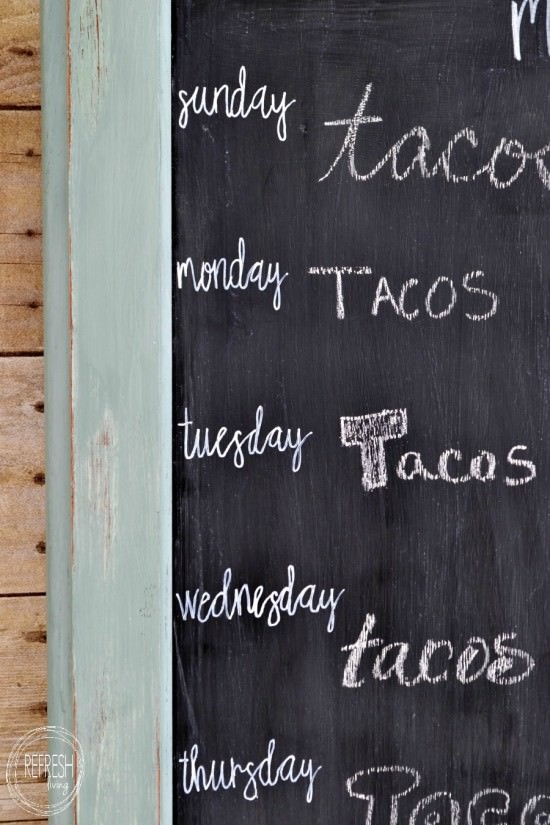 sunday tacos
monday TACOS
tuesday Tacos
wednesday tacos
thursday Tacos
REFRESH
living